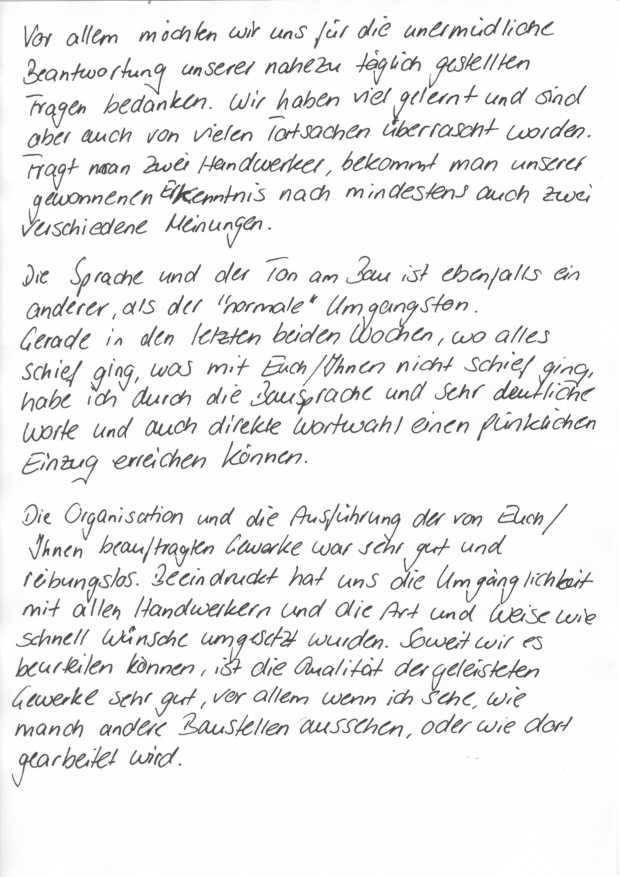 Vor allem möchten wir uns für die unermüdliche
Beantwortung unserer nahezu täglich gestellten
Fragen bedanken. Wir haben viel gelernt und sind
aber auch von vielen Tatsachen überrascht worden.
Fragt man zwei Handwerker, bekommt man unserer
gewonnenen Erkenntnis nach mindestens auch zwei
verschiedene Meinungen.
Die Sprache und der Ton am Bau ist ebenfalls ein
anderer, als der "normale" Umgangston.
Gerade in den letzten beiden Wochen, wo alles
schief ging, was mit Euch/Ihnen nicht schief ging,
habe ich durch die Bausprache und sehr deutliche
Worte und auch direkte Wortwahl einen pünktlichen
Einzug erreichen können.
Die Organisation und die Ausführung der von Euch/
Ihnen beauftragten Gewerke war sehr gut und
reibungslos. Beeindruckt hat uns die Umgänglichkeit
mit allen Handwerkern und die Art und Weise wie
schnell Wünsche umgesetzt wurden. Soweit wir es
beurteilen können, ist die Qualität der geleisteten
Gewerke sehr gut, vor allem wenn ich sehe, wie
manch andere Baustellen aussehen, oder wie dort
gearbeitet wird.